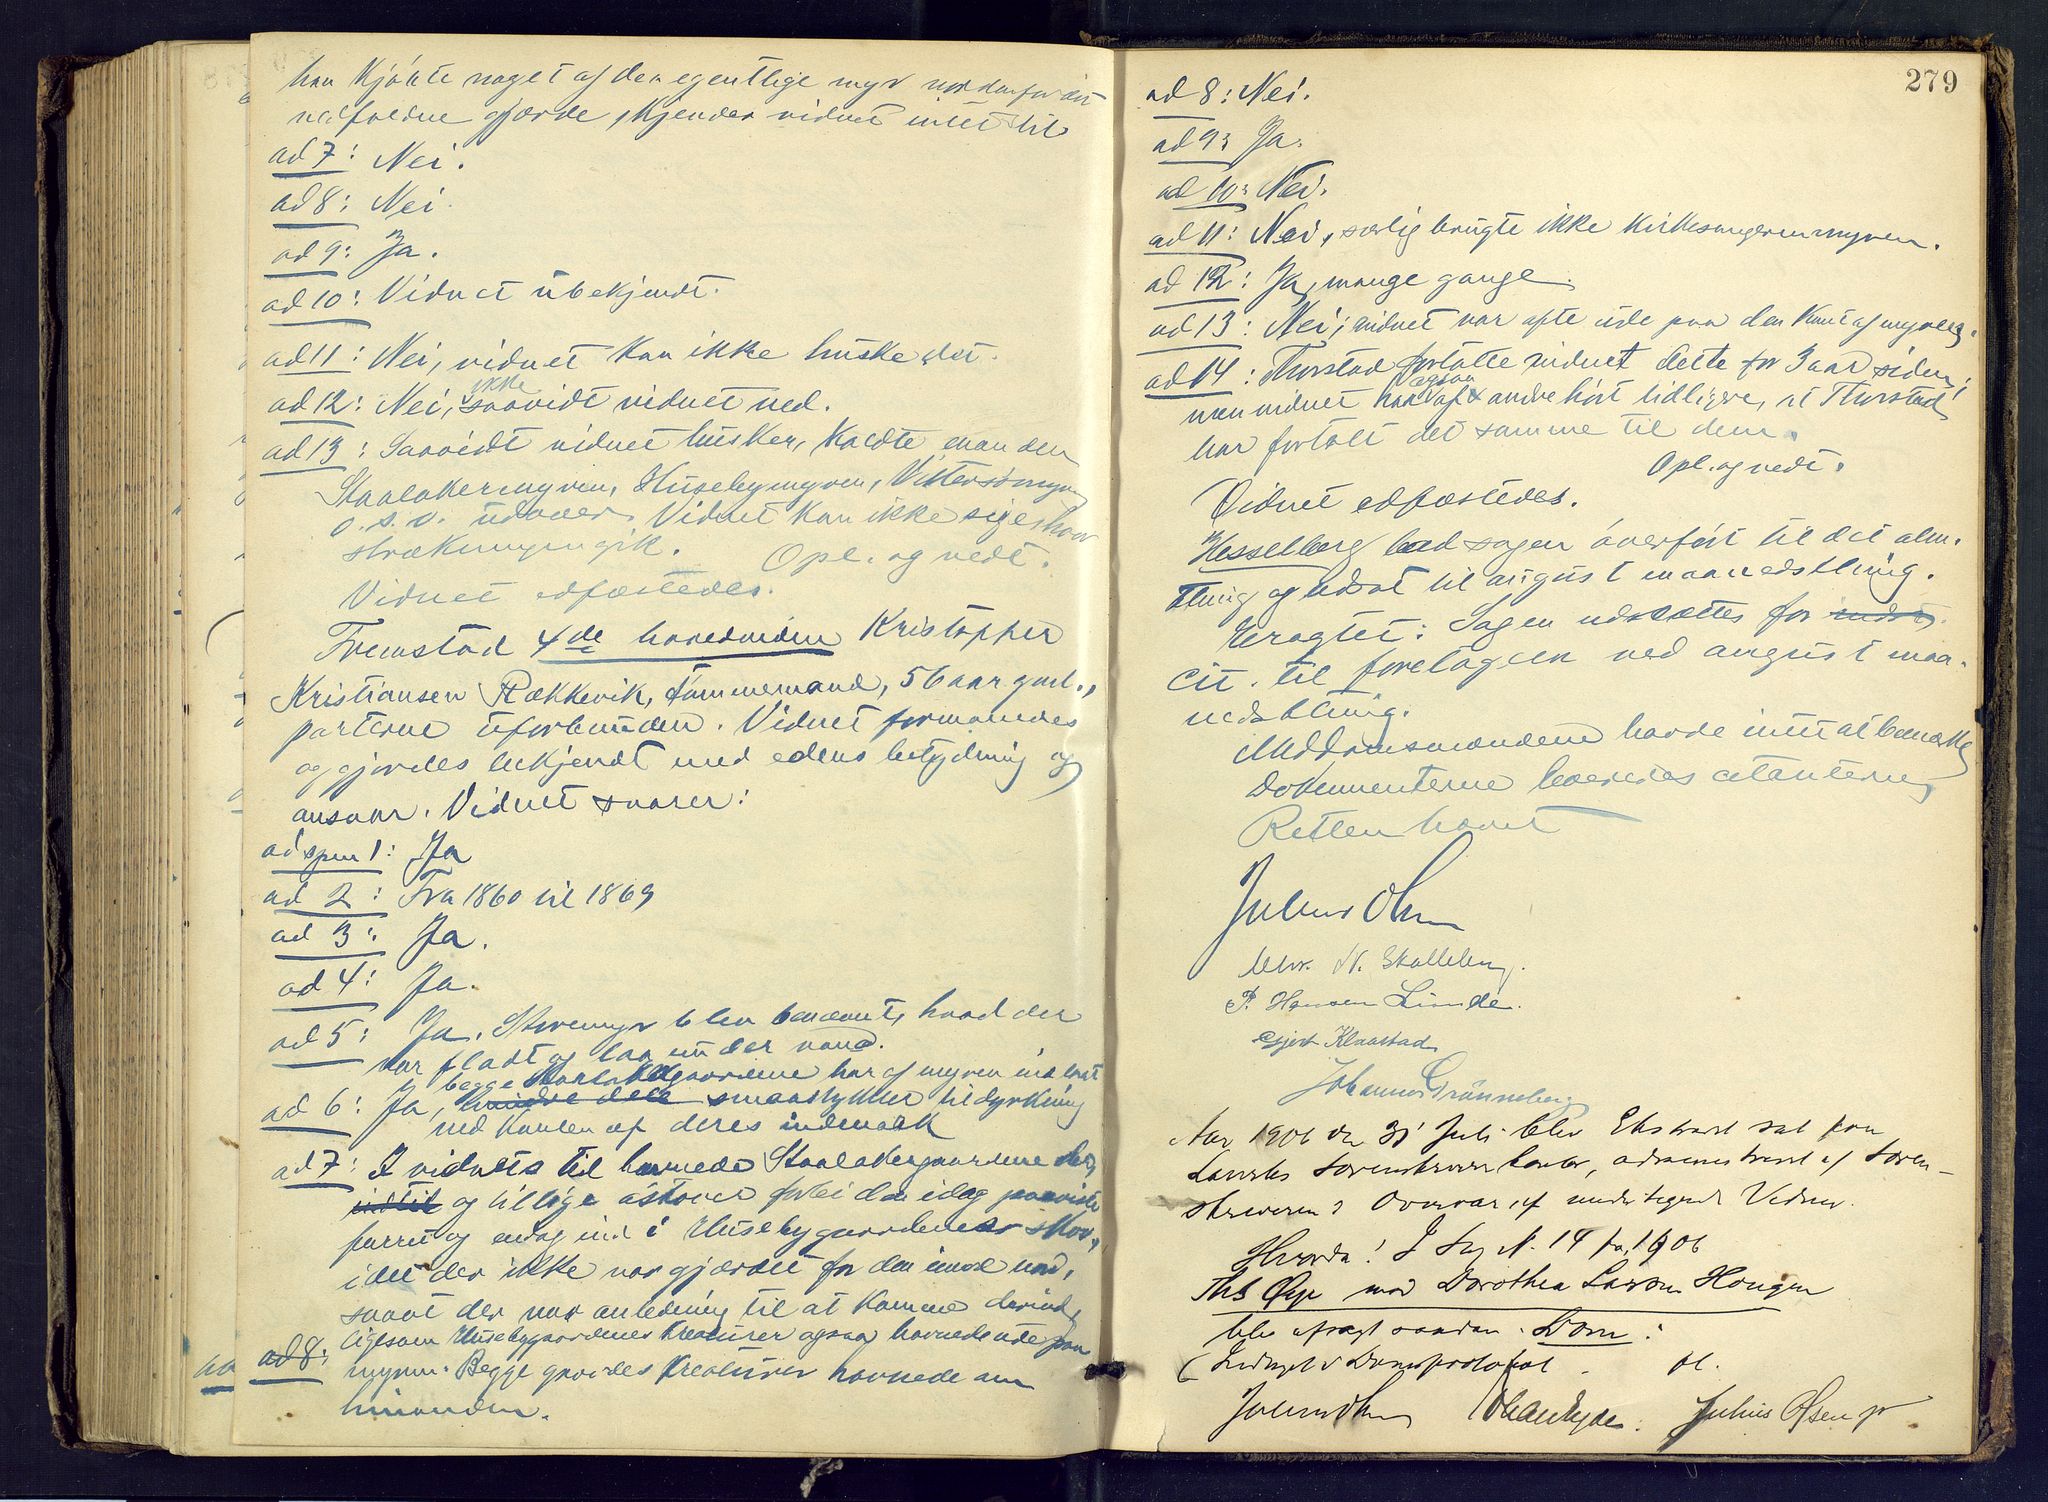 han kjøbte noget af den egentlige myr nordenfor det
nedfældne gjærde, kjender vidnet intet til
ad 7: Nei.
ad 8: Nei.
ad 9: Ja.
ad 10: Vidnet ubekjendt.
ad 11: Nei, vidnet kan ikke huske det.
ad 12: Nei, ikke saavidt vidnet ved.
ad 13: Saavidt vidnet husker, kaldte man den
Staalakermyren, Husebymyren, Vittersømyren
o.s.v. udover. Vidnet kan ikke sige hvor
strækningen gik. Opl. og vedt.
Vidnet edfæstedes.
Fremstod 4de hovedvidne Kristopher
Kristiansen Rækkevik, tømmermand, 56 aar gml.,
parterne uforbunden. Vidnet formanedes
og gjordes bekjendt med edens betydning og
ansvar. Vidnet svarer:
ad spm 1: Ja
ad 2: Fra 1860 til 1869
ad 3: Ja.
ad 4: Ja.
ad 5: Ja, Storemyr blev benævnt, hvad der
var fladt og laa under vand.
ad 6: Ja, begge Staalakergaardene har af myren indtat
smaastykker til dyrkning
ved kanten af deres indmark
ad 7: I vidnets tid havnede Staalakergaardene der,
indtil og tillige østover forbi den idag paaviste
furru og endog ind i Husebygaardenes skov,
idet der ikke var gjærdet for den imod nord,
saaat der var anledning til at komme derind,
ligesom Husebygaardenes kreaturer ogsaa havnede ude paa
ad 8: myren. Begge gaardes kreaturer havnede om
hinanden.
279
ad 8: Nei.
ad 9: Ja.
ad 10: Nei.
ad 11: Nei, særlig brugte ikke Kirkesangeren myren.
ad 12: Ja, mange gange.
ad 13: Nei; vidnet var ofte ude paa den kant af myren.
ad 14: Thorstad fortalte vidnet dette for 3 aar siden;
men vidnet har ogsaa af andre hørt tidligere, at Thorstad
har fortalt det samme til dem.
Opl. og vedt.
Vidnet edfæstedes.
Hesselberg bad sagen overført til det alm.
thing og udsat til august maanedsthing.
Eragtet: Sagen udsættes for
cit. til foretagen ved august maa-
nedsthing.
Meddomsmændene havde intet at bemærke
Dokumenterne leveredes citanterne
Retten hævet
Julius Olsen
Chr. N. Skalleberg.
P. Hansen Linnde.
Gjert Klaastad
Johannes Grønneberg
Aar 1906 den 31 Juli blev Ekstraret sat paa
Laurviks Sorenskriverkontor, administreret af Soren-
skriveren i Overvær af undertegnede Vidner.
Hvorda: I Sag N. 14 fra 1906
Ths Øye mod Dorothea Larsen Haugen
blev afsagt saadan Dom:
(Indtaget i Domsprotokol. Ol.
Julius Olsen Julius Olsen jr